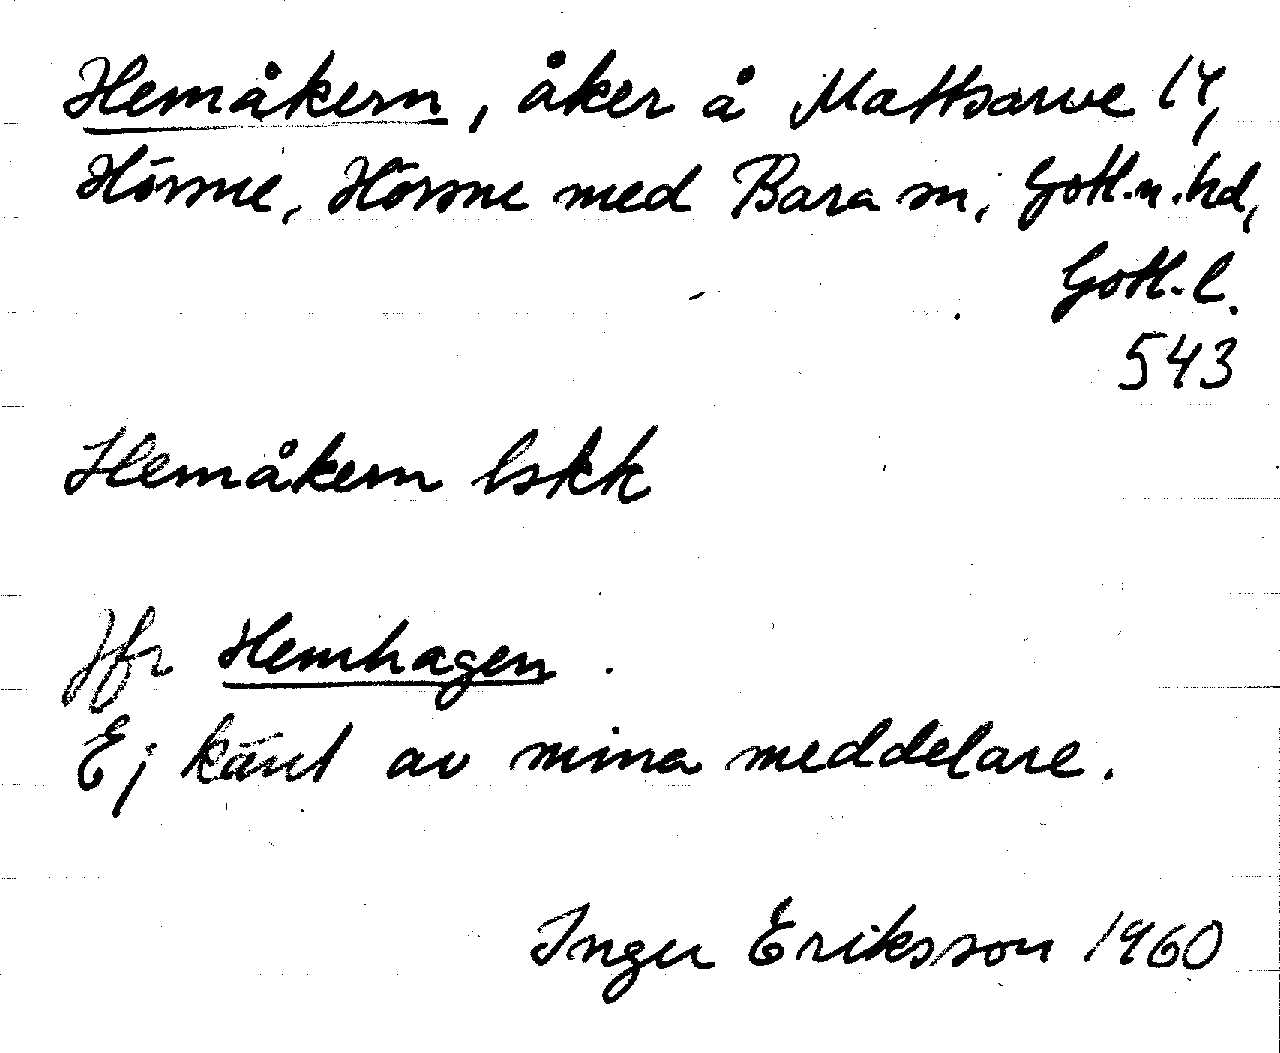 Hemåkern, åker å Mattsarve 14,
Hörsne, Hörsne med Bara sn, Gotl.n.hd,
Gotl.l.
543
Hemåkern lskk
Jfr Hemhagen.
Ej känt av mina meddelare.
Inger Eriksson 1960